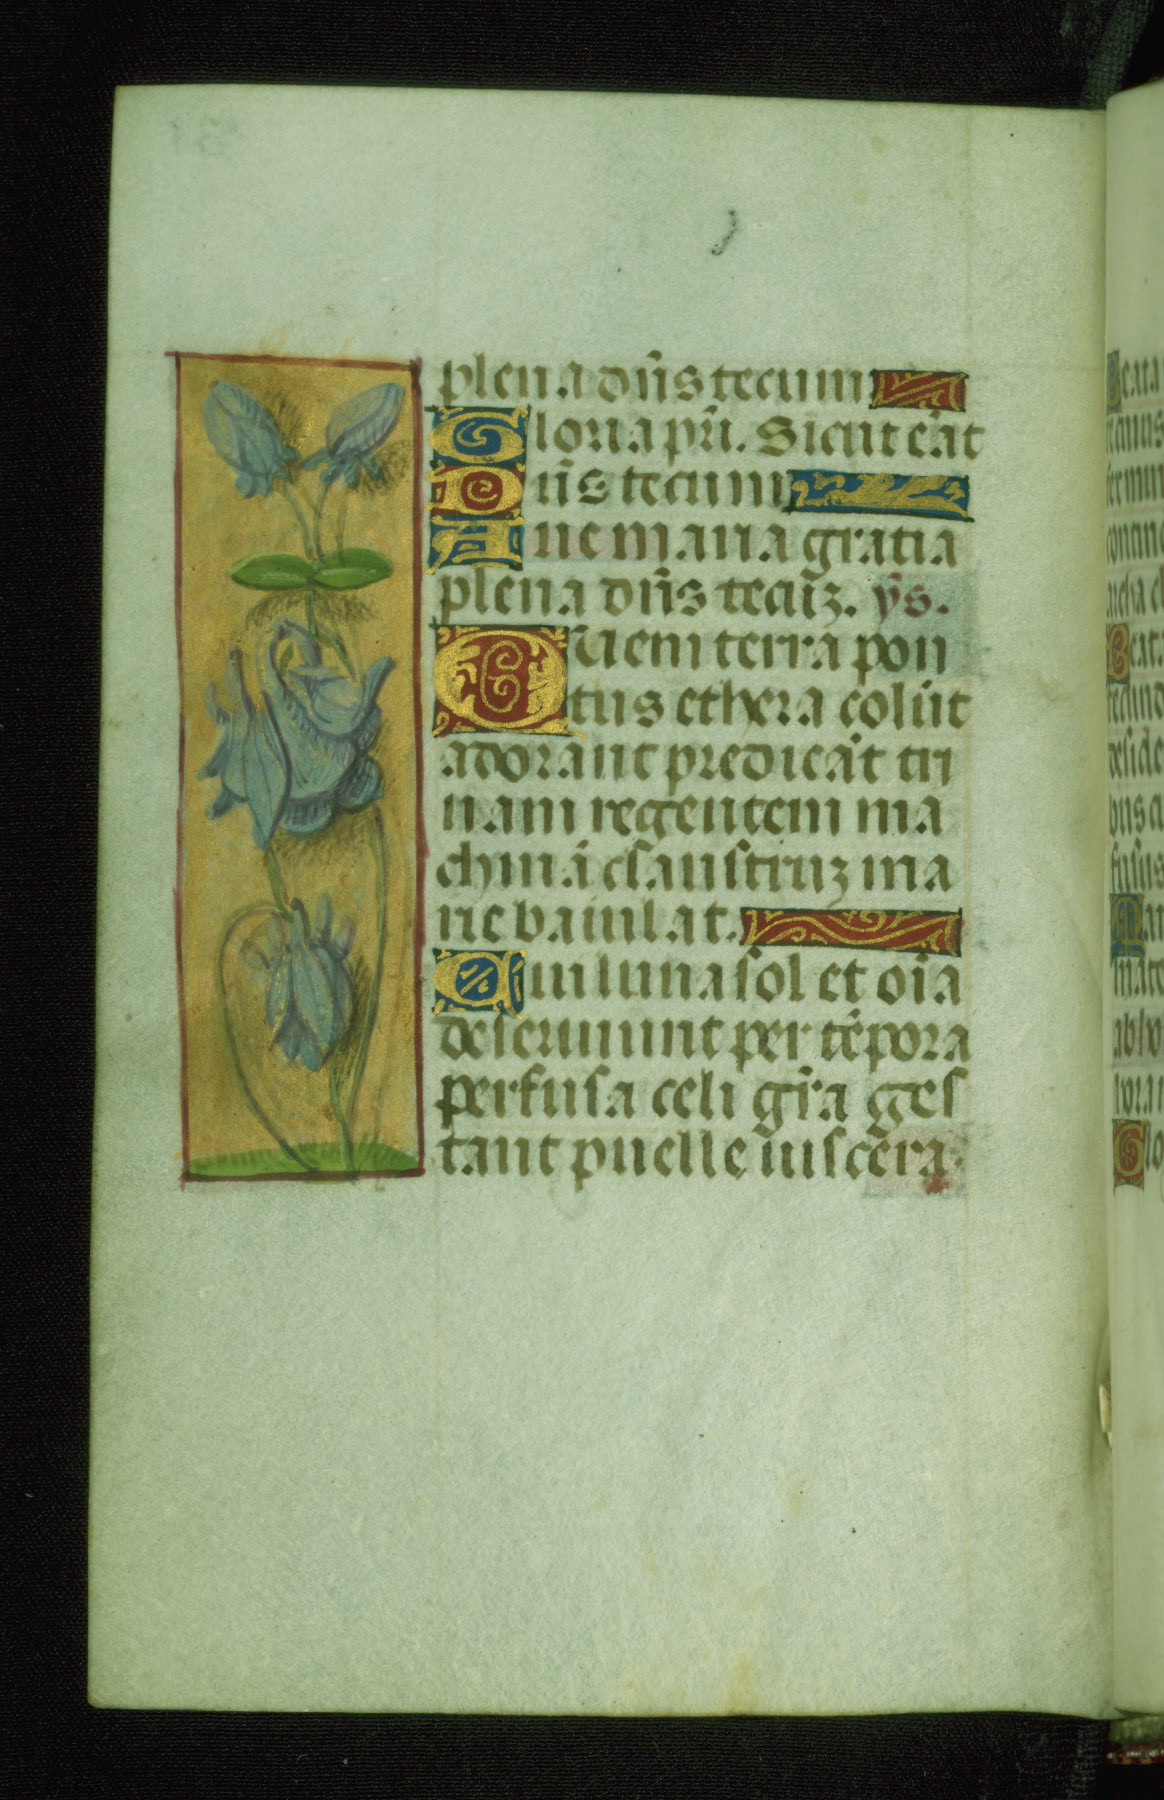 plena dn̄s tecum
Gloria pr̄i. Sicut erāt
Dn̄s tecum
Aue maria gratia
plena dn̄s tecuꝫ. ys̄.
Quem terra pon
tus ethera colūt
adorant predicāt tri
nam regentem ma
chinā claustruꝫ ma
rie baiulat.
Cui luna sol et oīa
deseruiunt per tēpora
perfusa celi gr̄a ges
tant puelle uiscēra.